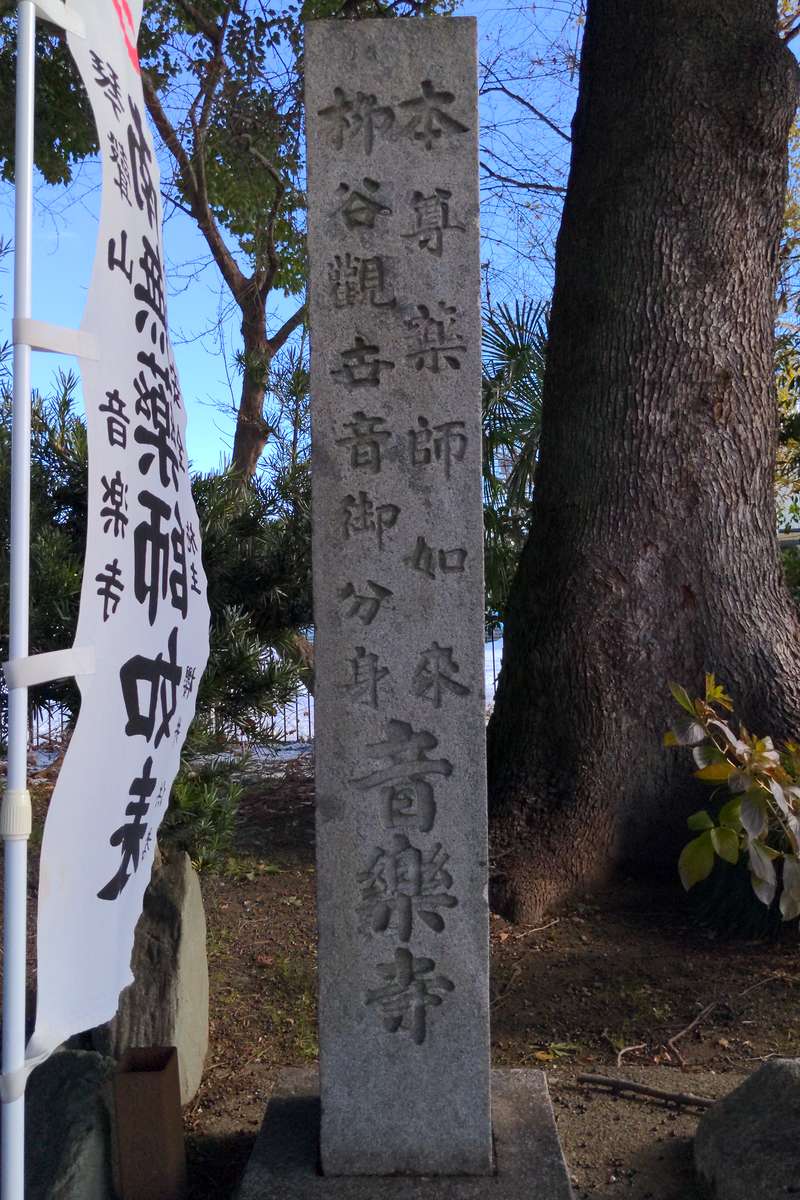 本尊薬師如來
柳谷觀世音御分身
音樂寺
南無薬師如来
琴聲山
音楽寺